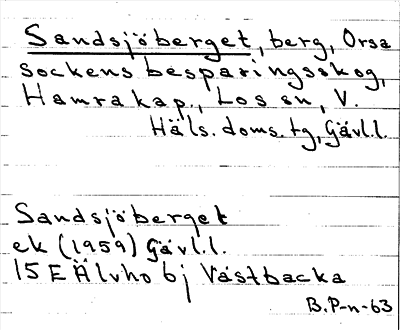 Sandsjöberget, berg, Orsa
sockens besparingsskog,
Hamra kap., Los sn, V.
Häls. doms. tg, Gävl.l.
Sandsjöberget
ek (1959) Gävl.l.
15 E Älvho 6j Västbacka
B.P-n-63